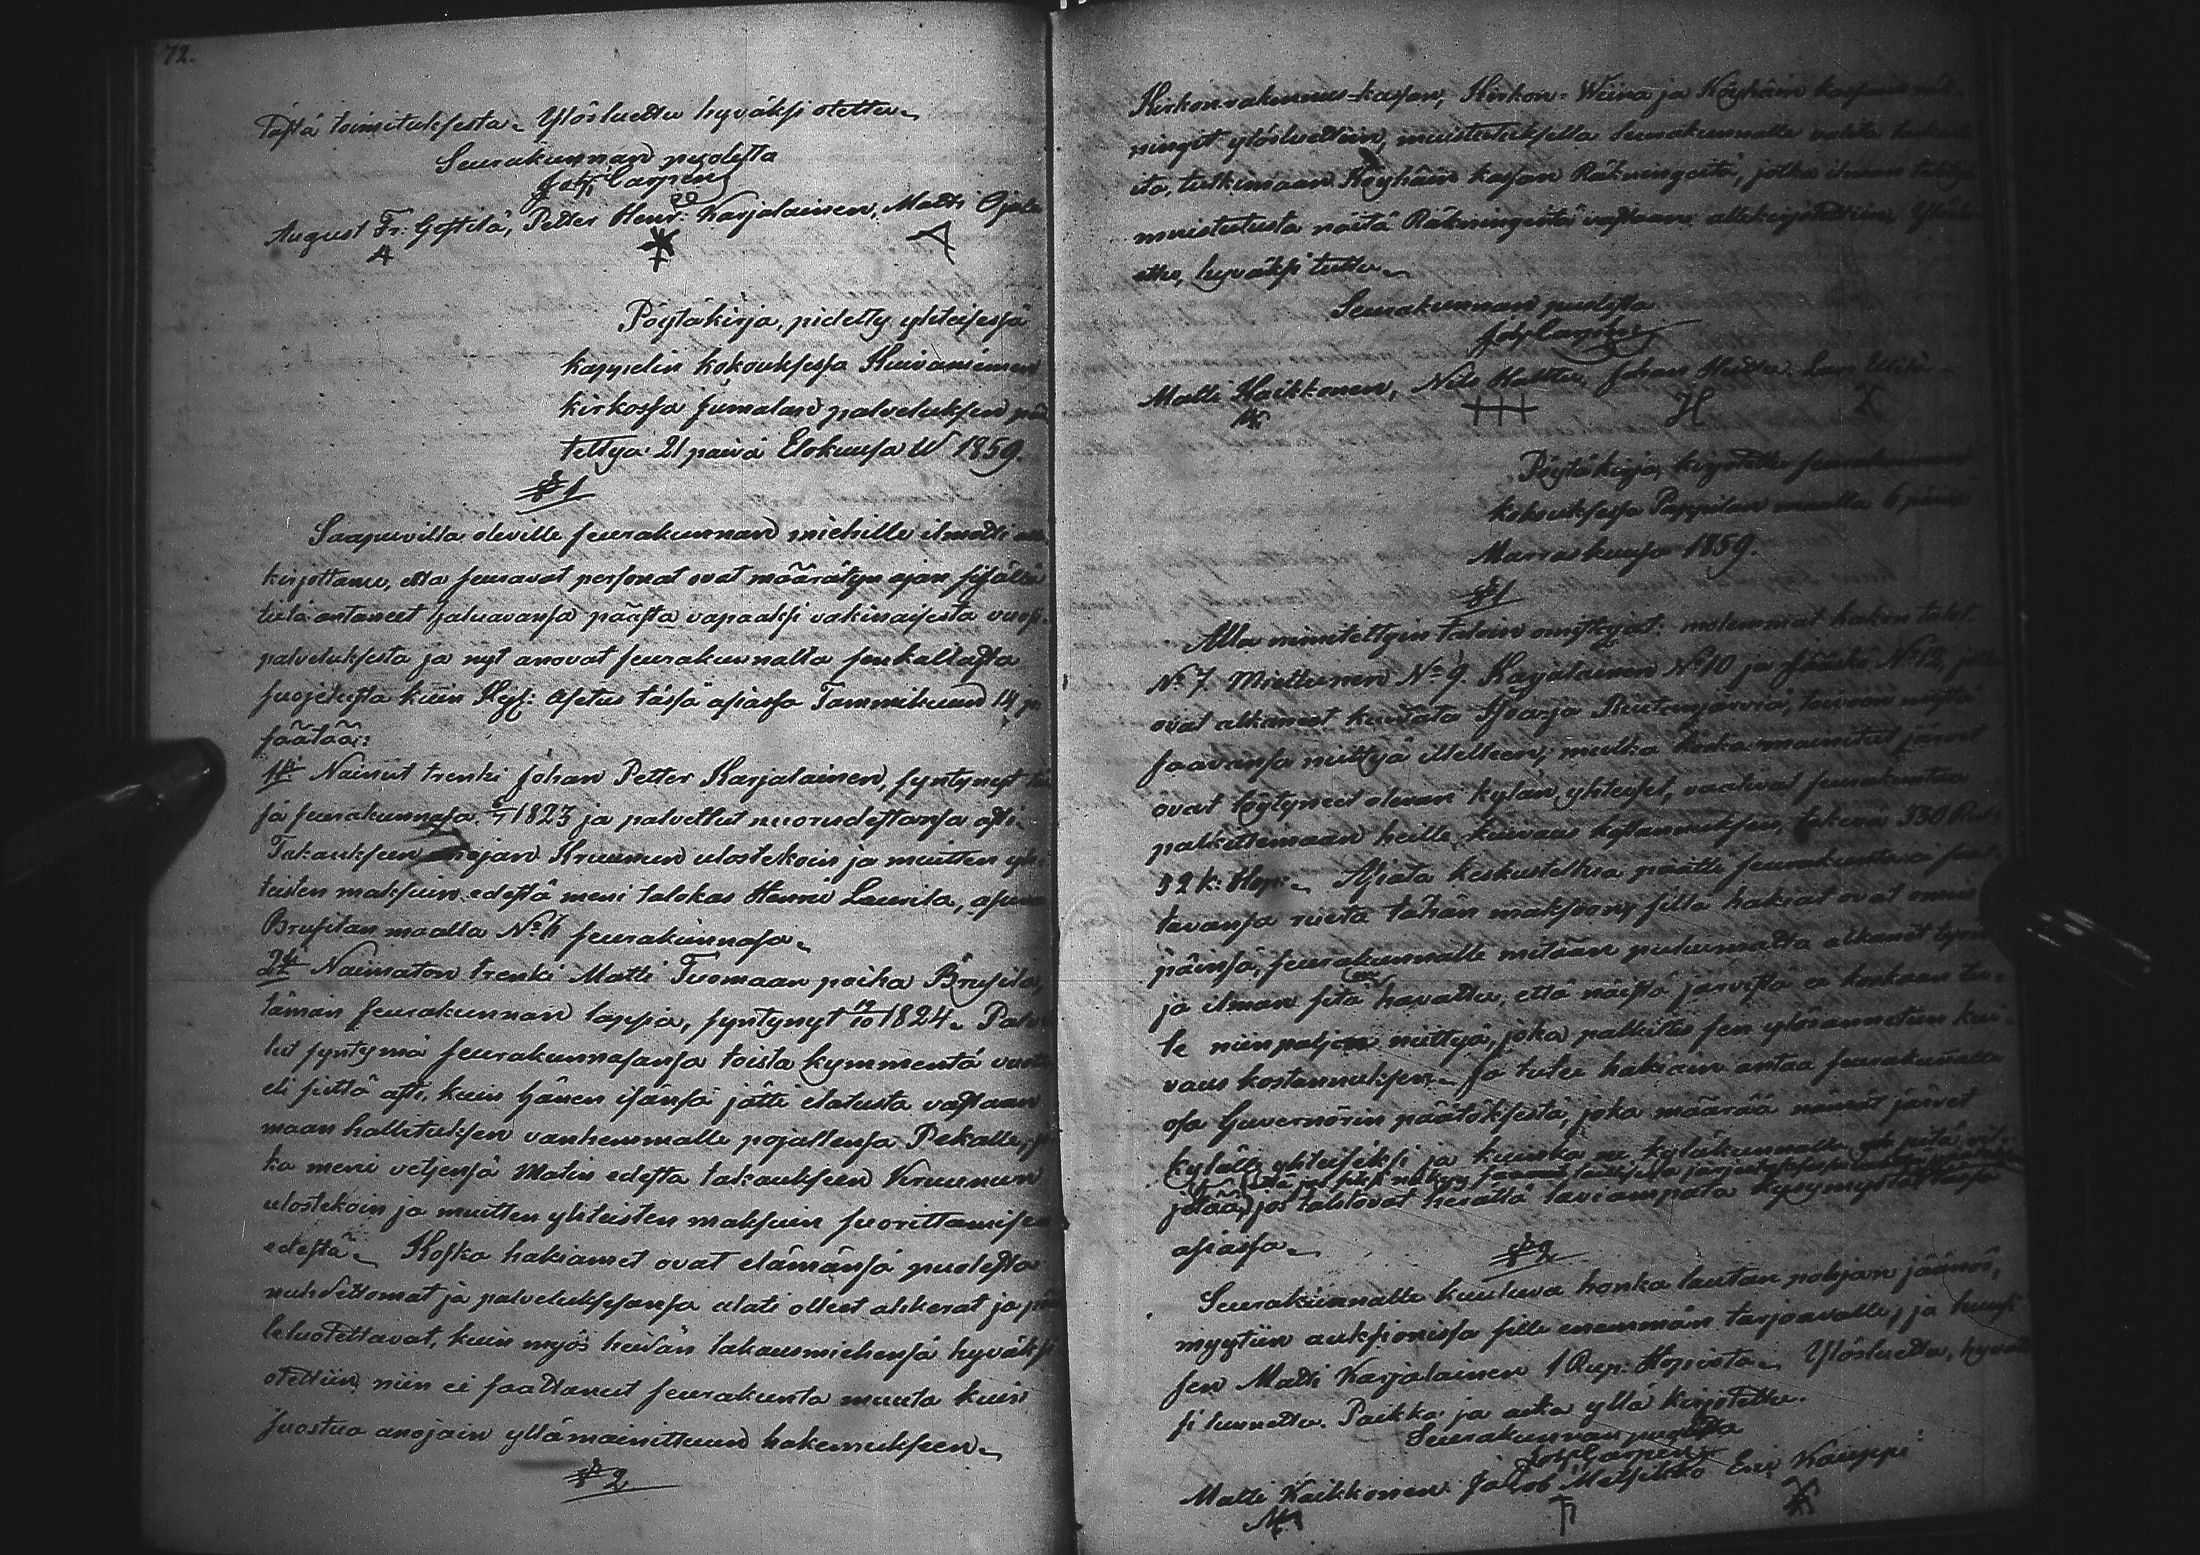 72.
Tästä toimituksesta. Ylösluettu hyväksi otettu.
Seurakunnan puolesta
Jos. Carpén
August Fr: Gostelä, Petter Henr: Karjalainen, Matti Ojala
Pöytäkirja, pidetty yhteisessä
kappelin kokouksessa Kuivaniemen
kirkossa Jumalan palveluksen pää
tettyä 21 päivä Elokuusa W 1859.
§ 1
Saapuvilla oleville seurakunnan miehille ilmotti alle
kirjottanu, että seuravat personat ovat määrätyn ajan sisällä
tietä antaneet haluavansa päästä vapaaksi vakinaisesta vuosi
palveluksesta ja nyt anovat seurakunnalta senkaltaista
suojelusta kuin Keis: Asetus tässä asiassa Tammikuun 14 p
säätää:
1ksi Nainut trenki Johan Petter Karjalainen, syntynyt täs
sä seurakunnasa 6/7 1823 ja palvellut nuorudestansa asti.
Takauksen anojan Kruunun ulostekoin ja muitten yh
teisten maksuin edestä meni talokas Henric Laurila, asuva
Brusilan maalla No 11 seurakunnasa.
2ksi Naimaton trenki Matti Tuomaan poika Brusila,
tämän seurakunnan lapsia, syntynyt 19/10 1824. Palvel
lut syntymä seurakunnasansa toista kymmentä vuotta
eli siittä asti, kuin hänen isänsä jätti elatusta vastaan
maan hallituksen vanhemmalle pojallensa Pekalle, jo
ka meni veljensä Matin edestä takaukseen Kruunun
ulostekoin ja muitten yhteisten maksuin suorittamisen
edestä. Koska hakiamet ovat elämänsä puolesta
nuhdettomat ja palveluksesansa alati olleet ahkerat ja pää
leluotettavat, kuin myös heidän takausmiehensä hyväksi
otettiin, niin ei saattanut seurakunta muuta kuin
suostua anojain yllämainittuun hakemukseen.
§ 2
Kirkonrakennus-kassan, Kirkon-Wiina ja Köyhäin kassan räk
ningit ylösluettiin, muistutuksella Seurakunnalle valita
itä, tutkimaan Köyhäin kassan Räkningeitä, jotka ilman
muistutusta näitä Räkningeitä vastaan allekirjotettiin. Ylöslu
ettu, hyväksi tuttu.
Seurakunnan puolesta
Jos. Carpén
Matti Kaikkonen, Nils Huttu, Johan Huttu, Lars
Pöytäkirja, kirjotettu seurakunnan
kokouksessa Pappilan maalla 6 päivä
Marraskuusa 1859.
§ 1
Alla nimitettyin taloin omistajat: molemmat talot
No 7. Miettunen No 9. Karjalainen No 10 ja Jääskö No 12, jotka
ovat alkaneet kuivata järviä, toivoin niistä
saavansa niittyä itsellen, mutta koska mainitut järvet
ovat löytyneet olevan kylän yhteiset, vaativat seurakuntaa
palkitsemaan heille kuivaus kustannuksen, tekevä 530 Rub:
32 k: Hop:. Asiata keskusteltua päälle seurakunta ei saat
tavansa ruveta tähän maksoon, sillä hakiat ovat omin
päinsä, seurakunnalle mitään puhumatta alkanet työn
ja ilman sitä on havattu, että näistä järvistä ei koskaan tu
le niin paljon niittyä, joka palkitsis sen ylösannetun kui
vaus kostannuksen. Ja tulee hakiain antaa seurakunnalle
osa Guvernörin päätöksestä, joka määrää nämät järvet
kylälle yhteiseksi ja kuinka ne kyläkunnalle pitä vil
jeltää, jos tahtovat herättä laviampata kysymystä tässä
asiassa.
§ 2
Seurakunnalle kuuluva honka lautan pohjan jäänös,
myytiin auksionissa sille enemmän tarjoavalle, ja huusi
sen Matti Karjalainen 1 Rup: Hopiata. Ylösluettu, hyväk
si tunnettu. Paikka ja aika yllä kirjotettu.
Seurakunnan puolesta
Jos. Carpén
Matti Kaikkonen Jakob Matsikko Eric Kauppi